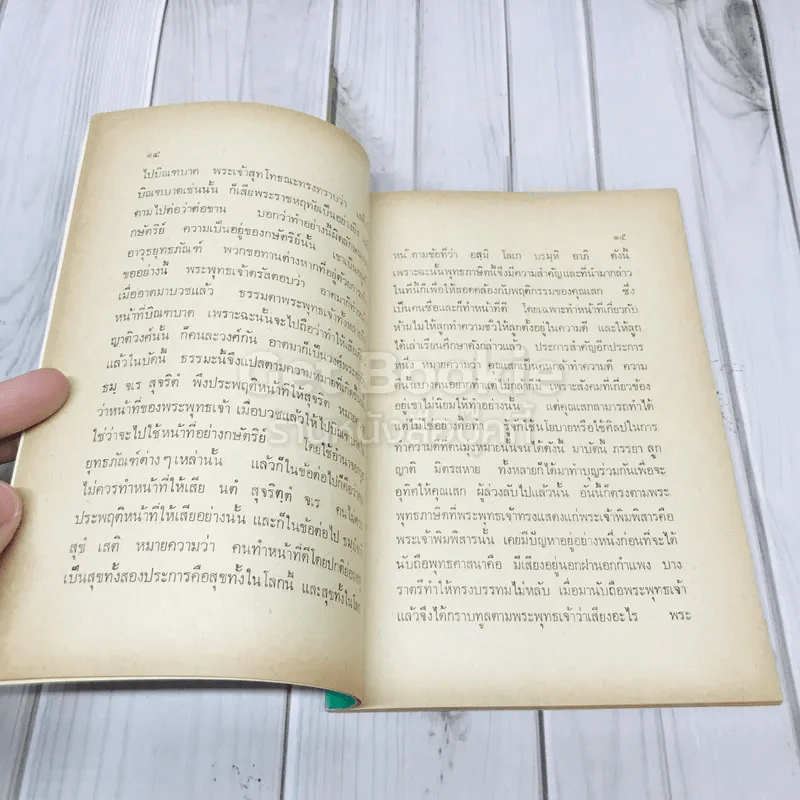 ๑๔
ไปบิณฑบาต พระเจ้าสุทโทธณะทรงทราบว่า
บิณฑบาตเช่นนั้น ก็เสียพระราชหฤทัยเป็นอย่างยิ่ง
ตามไปต่อว่าต่อขาน บอกว่าทำอย่างนี้ผิด
กษัตริย์ ความเป็นอยู่ของกษัตริย์นั้น เขาเป็นอยู่
อาวุธยุทธภัณฑ์ พวกขอทานต่างหากที่อยู่ด้วย
ขออย่างนี้ พระพุทธเจ้าตรัสตอบว่า อาตมาก็ทำ
เมื่ออาตมาบวชแล้ว ธรรมดาพระพุทธเจ้าทั้งหลาย
หน้าที่บิณฑบาต เพราะฉะนั้นจะไปถือว่าทำให้เสีย
ญาติวงศ์นั้น ก็คนละวงศ์กัน อาตมาก็เป็นวงศ์พระ
แล้วไบบัดนี้ ธรรมะนี้จึงแปลตามความหมายที่
ธมฺ จเร สุจริตํ พึงประพฤติหน้าที่ให้สุจริต หมาย
ว่าหน้าที่ของพระพุทธเจ้า เมื่อบวชแล้วให้ไปบิณฑบาต
ใช่ว่าจะไปใช้หน้าที่อย่างกษัตริย์ โดยใช้อำนาจ
ยุทธภัณฑ์ต่าง ๆ เหล่านั้น แล้วก็ในข้อต่อไปก็คือว่า
ไม่ควรทำหน้าที่ให้เสีย นตํ สุจริตฺตํ จเร คนไม่ควร
ประพฤติหน้าที่ให้เสียอย่างนั้น และก็ในข้อต่อไป
สุขํ เสติ หมายความว่า คนทำหน้าที่ดีโดยปกติย่อม
เป็นสุขทั้งสองประการคือสุขทั้งในโลกนี้ และสุขทั้งในโลก
๑๕
หน้ ตามข้อที่ว่า อสฺมิ โลเก บรมฺหิ อาภิ ดังนี้
เพราะฉะนั้นพุทธภาษิตนี้จึงมีความสำคัญและที่นำมากล่าว
ในที่นี้ก็เพื่อให้สอดคล้องกับพฤติกรรมของคุณเสก ซึ่ง
เป็นคนซื่อและก็ทำหน้าที่ดี โดยเฉพาะทำหน้าที่เกี่ยวกับ
ห้ามไม่ให้ลูกทำความชั่วให้ลูกตั้งอยู่ในความดี และให้ลูก
ได้เล่าเรียนศึกษาดังกล่าวแล้ว ประการสำคัญอีกประการ
หนึ่ง หมายความว่า คุณเสกเป็นคนกล้าทำความดี ความ
ดีนั้นบางคนอยากทำแต่ไม่กล้าทำ เพราะสังคมที่เกี่ยวข้อง
อยู่เขาไม่นิยมให้ทำอย่างนั้น แต่คุณเสกสามารถทำได้
แต่ไม่ใช่อย่างคือทำ รู้จักใช้นโยบายหรือใช้ศิลปในการ
ทำความดีที่ตนมุ่งหมายนั้นจนได้ดังนี้ มาบัดนี้ ภรรยา ลูก
ญาติ มิตรสหาย ทั้งหลายก็ได้มาทำบุญร่วมกันเพื่อจะ
อุทิศให้คุณเสก ผู้ล่วงลับไปแล้วนั้น อันนี้ก็ตรงตามพระ
พุทธภาษิตที่พระพุทธเจ้าทรงแสดงแก่พระเจ้าพิมพิสารคือ
พระเจ้าพิมพิสารนั้น เคยมีปัญหาอยู่อย่างหนึ่งก่อนที่จะได้
นับถือพุทธศาสนาคือ มีเสียงอยู่นอกฝานอกกำแพง บาง
ราตรีทำให้ทรงบรรทมไม่หลับ เมื่อมานับถือพระพุทธเจ้า
แล้วจึงได้กราบทูลตามพระพุทธเจ้าว่าเสียงอะไร พระ